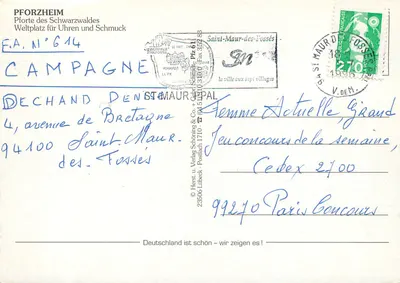 PFORZHEIM
Pforte des Schwarzwaldes
Weltplatz für Uhren und Schmuck
F.A. N° 614
CAMPAGNE
DECHAND DENISE
4, avenue de Bretagne
94100 Saint-Maur-
des-Fossés
Saint-Maur-des-Fossés
la ville aux sept villages
ST MAUR PPAL
94 ST MAUR DES FOSSES
1996
V. DE M.
2,70
© Herst. u. Verlag Schöning & Co
23506 Lübeck
Femme Actuelle Grand
Jeu concours de la semaine
Cedex 2700
99270 Paris Concours
Deutschland ist schön - wir zeigen es!